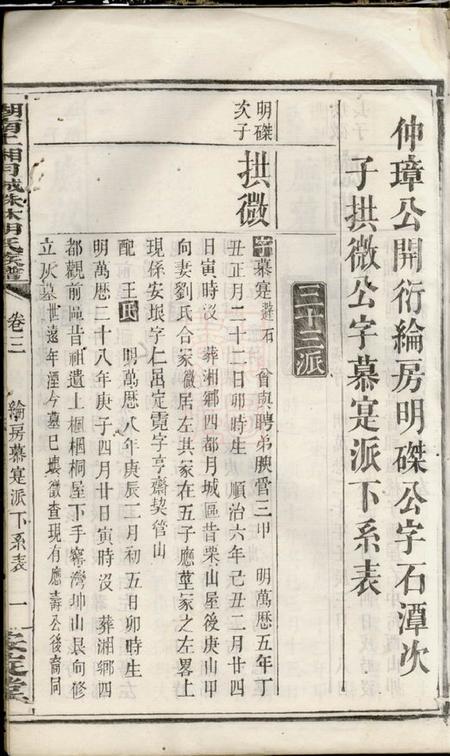 仲璋公開衍綸房明磔公字石潭次
子拱微公字慕寔派下系表
三十三派
明磔
次子
拱微
字慕寔 避石 曾與聘弟腴管三甲 明萬歷五年丁
丑正月二十二日卯時生 順治六年己丑二月廿四
日寅時沒 葬湘鄉四都月城區昔栗山屋後庚山甲
向妻劉氏合冢微居左其冢在五子應莖冢之左畧上
現係安垠字仁邑定霓字亨齋契管山
配王氏 明萬歷八年庚辰二月初五日卯時生
明萬歷二十八年庚子四月廿日寅時沒 葬湘鄉四
都觀前區昔祖遺土梱梱桐屋下手窰灣坤山艮向修
立灰墓世遠年湮今墓已壞徵查現有應壽公後裔同
湖南二湘月城株林胡氏家譜
卷三
綸房慕寔派下系表
一
安定堂